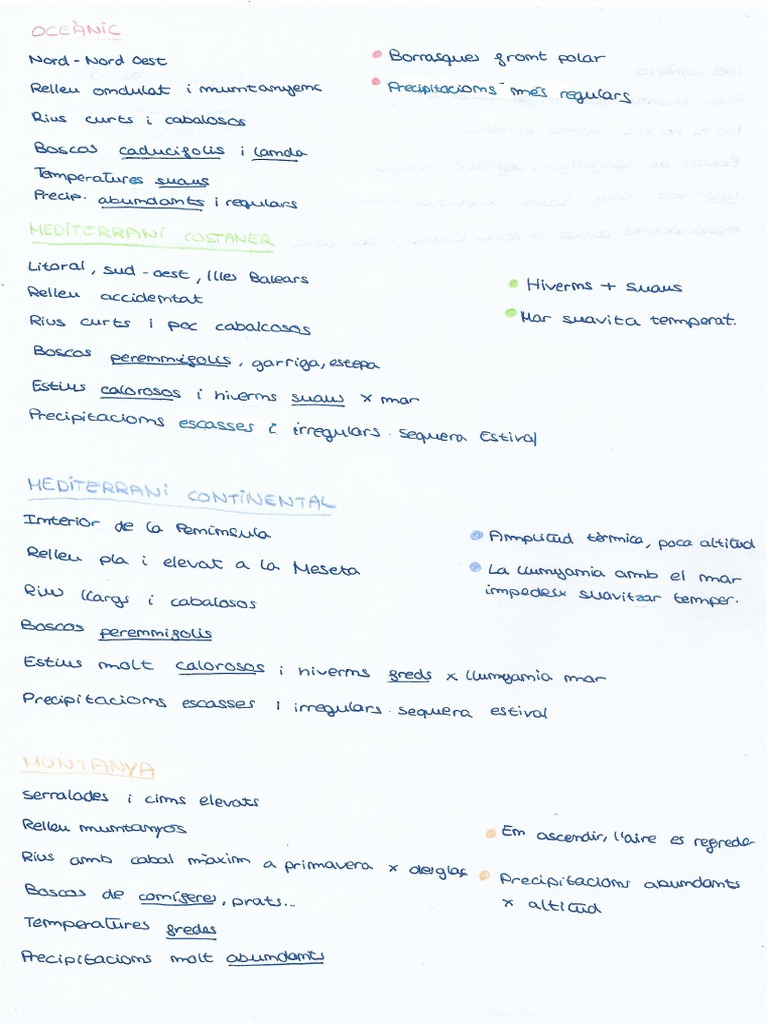 OCEÀNIC
Nord - Nord Oest
Relleu ondulat i muntanyenc
Rius curts i cabalosos
Boscos caducifolis i landa
Temperatures suaus
Precip. abundants i regulars
• Borrasques front polar
• Precipitacions més regulars
MEDITERRANI COSTANER
Litoral, sud-oest, Illes Balears
Relleu accidentat
Rius curts i poc cabalcosos
Boscos perennifolis, garriga, estepa
Estius calorosos i hiverns suaus x mar
Precipitacions escasses i irregulars. Sequera Estival
• Hiverns + suaus
• Mar suavita temperat.
MEDITERRANI CONTINENTAL
Interior de la Península
Relleu pla i elevat a la Meseta
Rius llargs i cabalosos
Boscos perennifolis
Estius molt calorosos i hiverns freds x llunyania mar
Precipitacions escasses i irregulars. Sequera estival
• Amplitud tèrmica, poca altitud
• La llunyania amb el mar
impedeix suavitzar temper.
MUNTANYA
Serralades i cims elevats
Relleu muntanyós
Rius amb cabal màxim a primavera x desglaç
Boscos de coníferes, prats...
Temperatures fredes
Precipitacions molt abundants
• En ascendir, l'aire es refreda
• Precipitacions abundants
x altitud